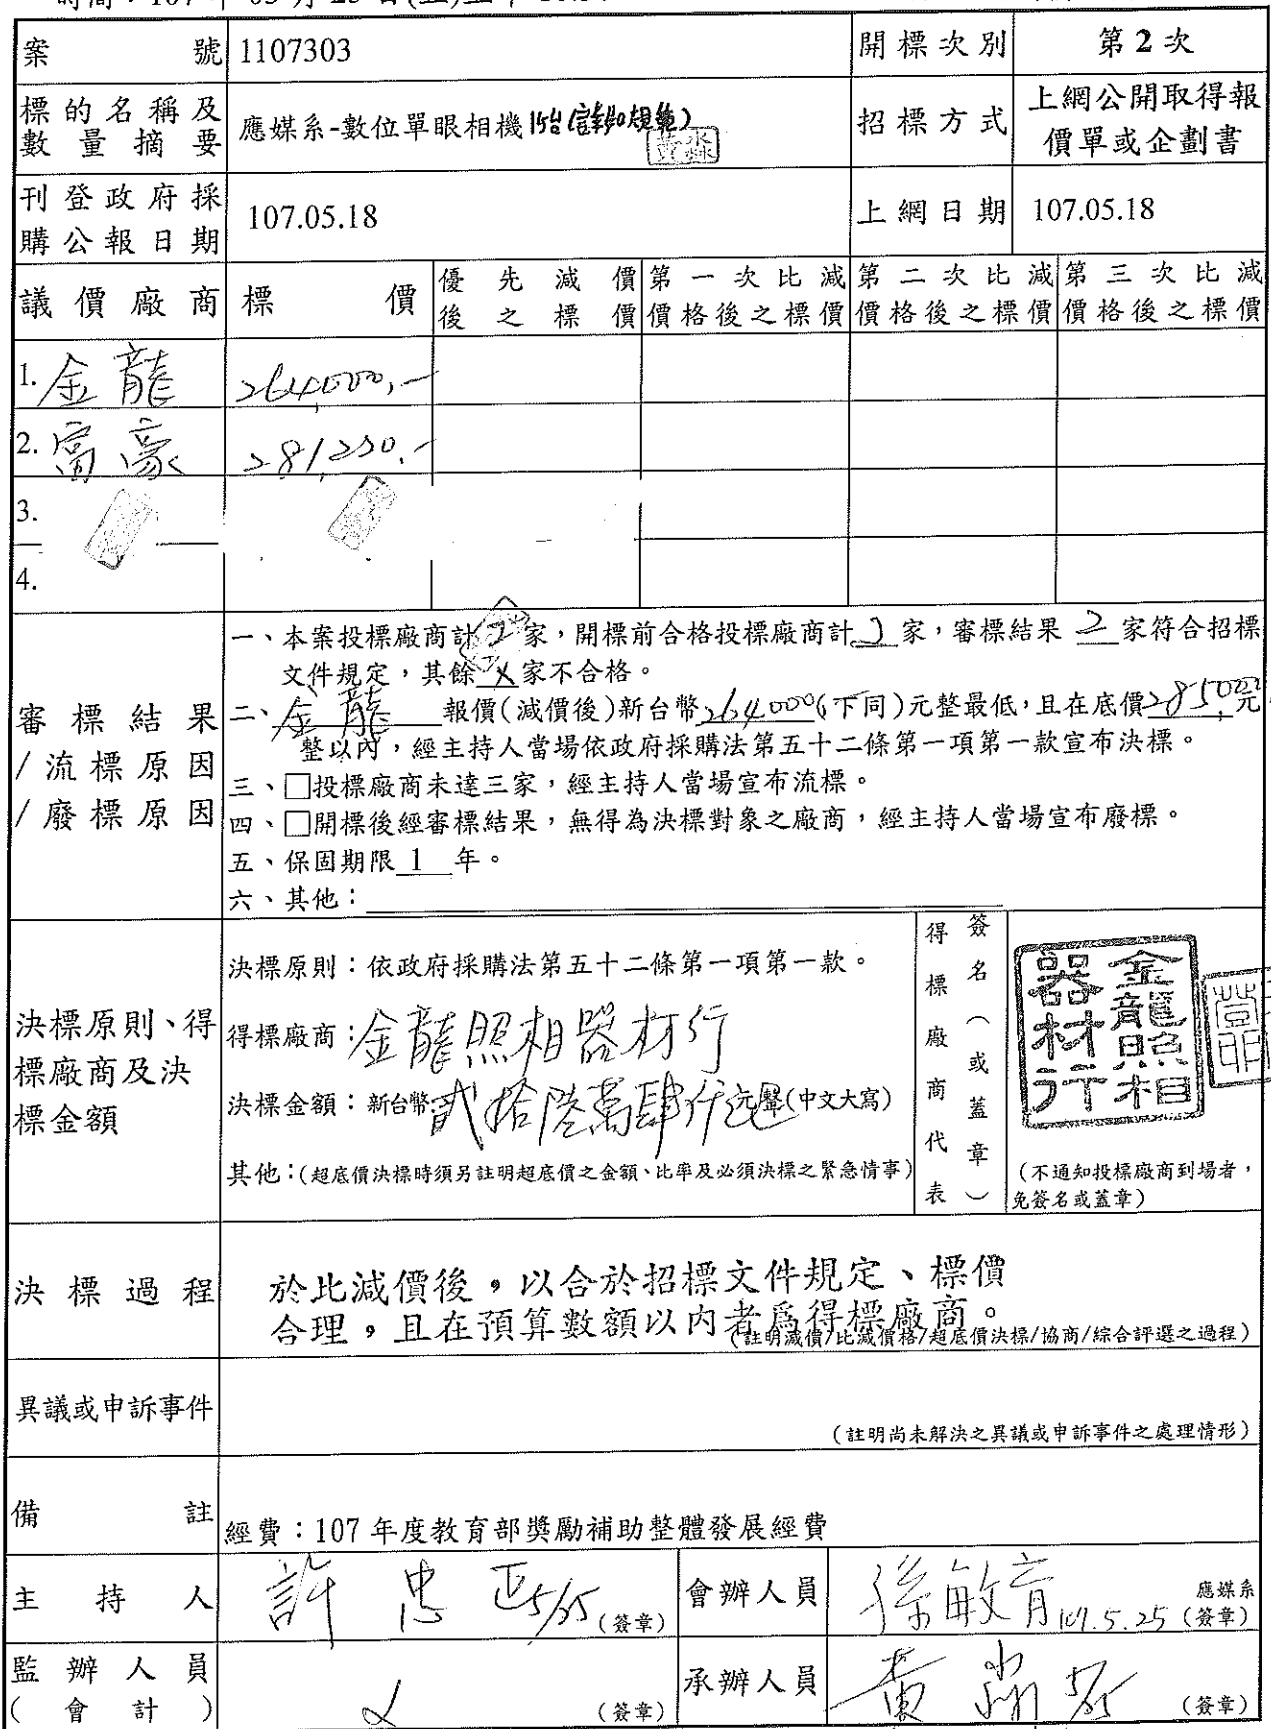 案號 1107303 開標次別 第2次
標的名稱及數量摘要 應媒系-數位單眼相機15台(詳如規範) 招標方式 上網公開取得報價單或企劃書
刊登政府採購公報日期 107.05.18 上網日期 107.05.18
議價廠商 標價 優先減價後之標價 第一次比減價格後之標價 第二次比減價格後之標價 第三次比減價格後之標價
1. 金龍 264,000,-
2. 富豪 281,250.-
3.
4.
審標結果/流標原因/廢標原因
一、本案投標廠商計2家，開標前合格投標廠商計2家，審標結果 2 家符合招標
文件規定，其餘 X 家不合格。
二、金龍 報價(減價後)新台幣264,000(下同)元整最低，且在底價285,000元
整以內，經主持人當場依政府採購法第五十二條第一項第一款宣布決標。
三、□投標廠商未達三家，經主持人當場宣布流標。
四、□開標後經審標結果，無得為決標對象之廠商，經主持人當場宣布廢標。
五、保固期限 1 年。
六、其他：
決標原則、得標廠商及決標金額
決標原則：依政府採購法第五十二條第一項第一款。
得標廠商：金龍照相器材行
決標金額：新台幣貳拾陸萬肆仟元整(中文大寫)
其他：(超底價決標時須另註明超底價之金額、比率及必須決標之緊急情事)
得標廠商代表簽名(或蓋章)
金龍照相器材行
(不通知投標廠商到場者，
免簽名或蓋章)
決標過程
於比減價後，以合於招標文件規定、標價
合理，且在預算數額以內者為得標廠商。
(註明減價/比減價格/超底價決標/協商/綜合評選之過程)
異議或申訴事件
(註明尚未解決之異議或申訴事件之處理情形)
備註 經費：107 年度教育部獎勵補助整體發展經費
主持人 許忠正 5/25 (簽章) 會辦人員 孫敏育 107.5.25 應媒系 (簽章)
監辦人員(會計) (簽章) 承辦人員 黃 5/25 (簽章)